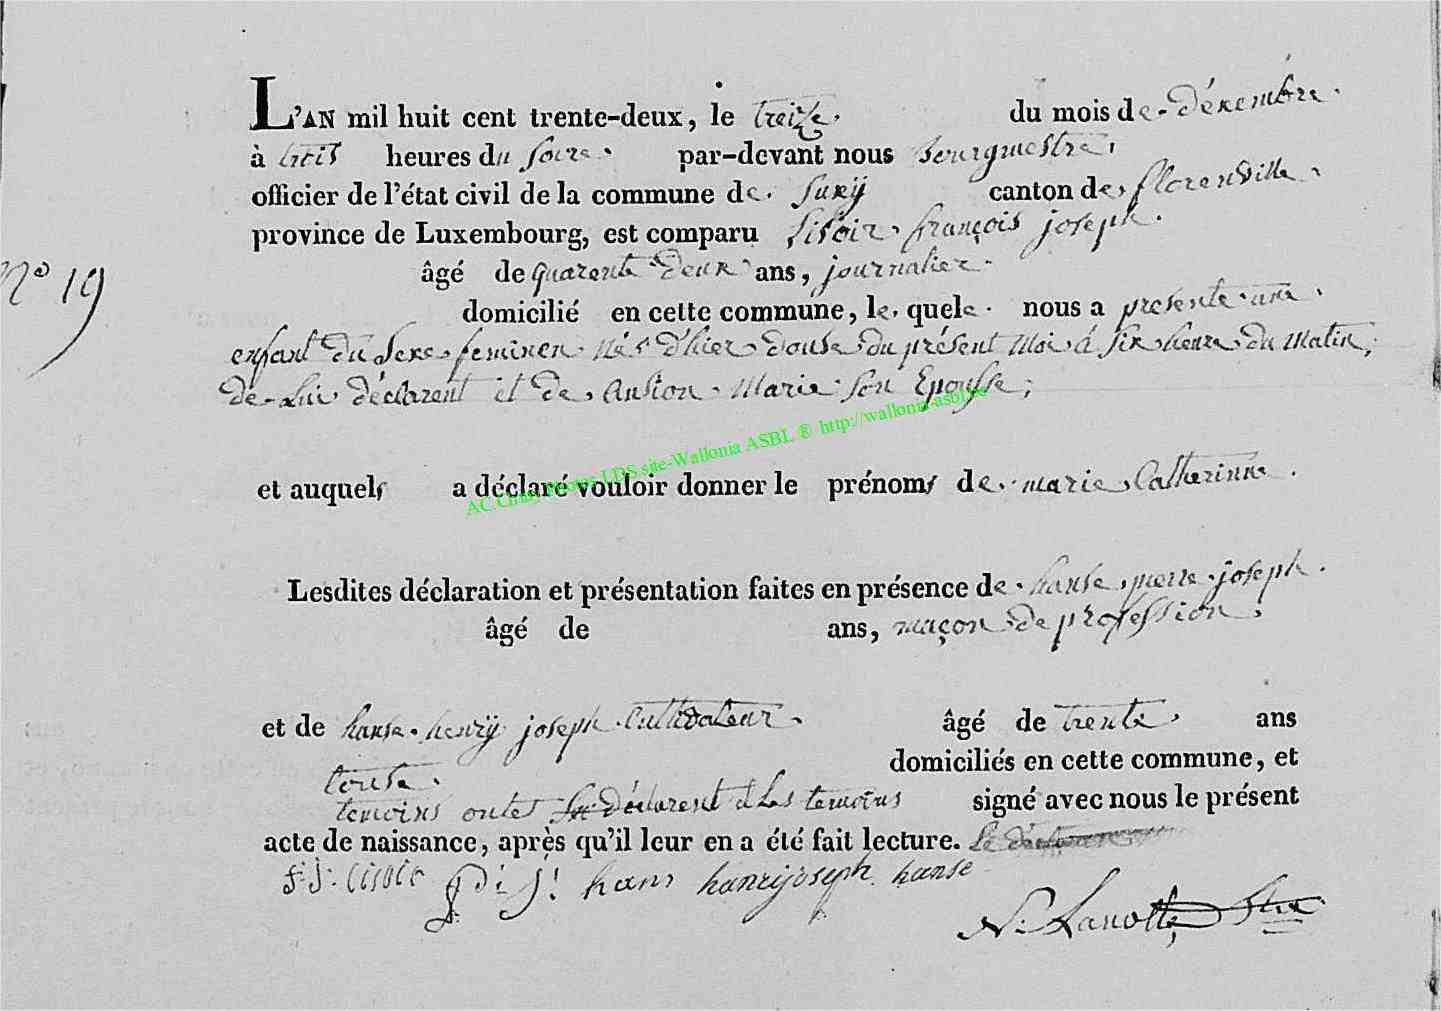 L'AN mil huit cent trente-deux, le treize. du mois de. Décembre.
à trois heures du soire. par-devant nous bourgmestre,
officier de l'état civil de la commune de. Suxÿ canton de, florenville.
province de Luxembourg, est comparu Lisoir. françois joseph.
N° 19
âgé de quarente deux ans, journalier.
domicilié en cette commune, le. quele. nous a presente. une.
enfant du sexe. feminen. née d'hier. douse. du présent Moi. á six heure. du Matin,
de. Lui déclarent et de. Marie. son Epousse;
AC Photos LDS site-Wallonia ASBL ® http://wallonia-asbl.be
et auquels a déclaré vouloir donner le prénoms de. marie. Catherinne.
Lesdites déclaration et présentation faites en présence de. hanse. pierre. joseph.
âgé de ans, maçon. de profession.
et de hanse. henrÿ joseph. Cultivateur. âgé de trente. ans
touse. domiciliés en cette commune, et
temoins ontes déclarent et Les temoins signé avec nous le présent
acte de naissance, après qu'il leur en a été fait lecture. Le
f: j: Lisoir P: j: hans hanrijoseph. hanse
N: Lanotte,